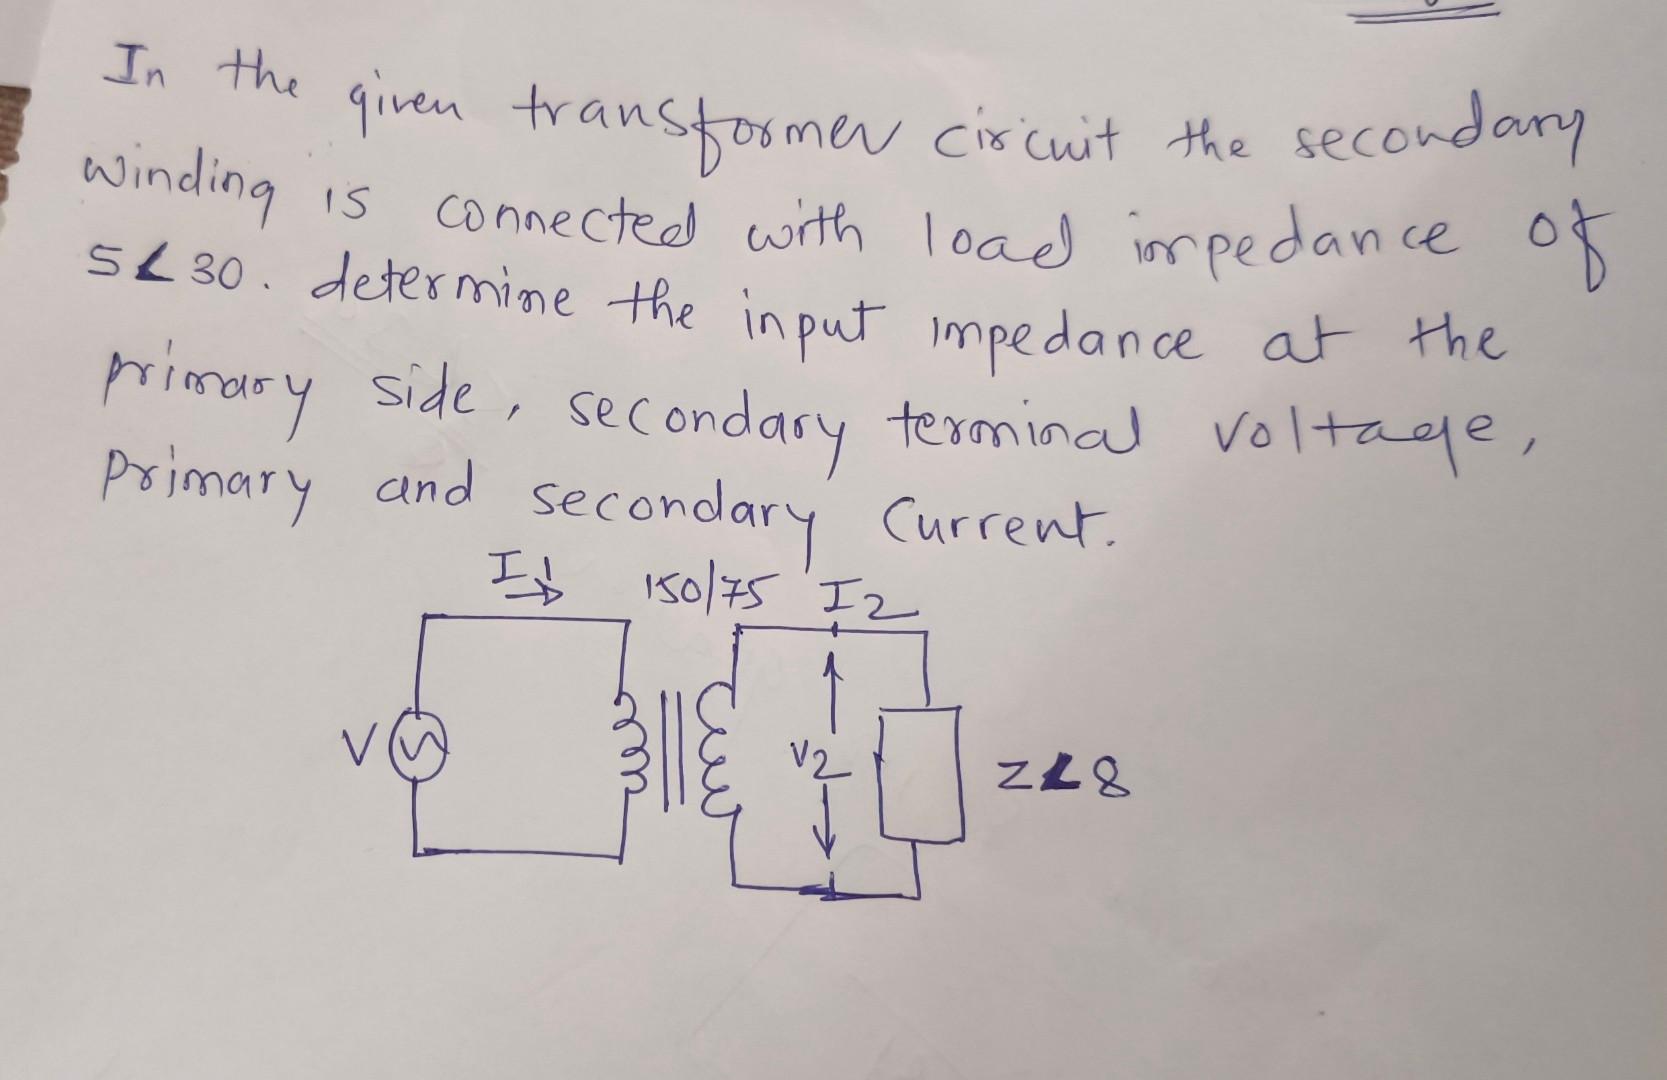 In the given transformer circuit the secondary
winding is connected with load impedance of
5∠30. determine the input impedance at the
primary side, secondary terminal voltage,
primary and secondary Current.
I1 150/75 I2
V V2 Z∠8